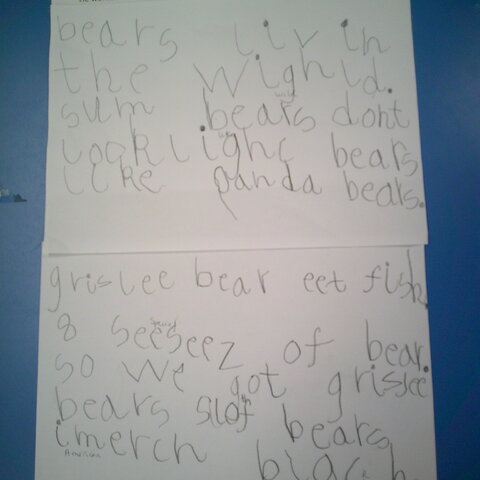 bears liv in
the wighld.
wild
sum bears dont
look lighc bears
like panda bears.
grislee bear eet fish
8 seeseez of bear.
so we got grislee
bears slof bears
imerch black b
American